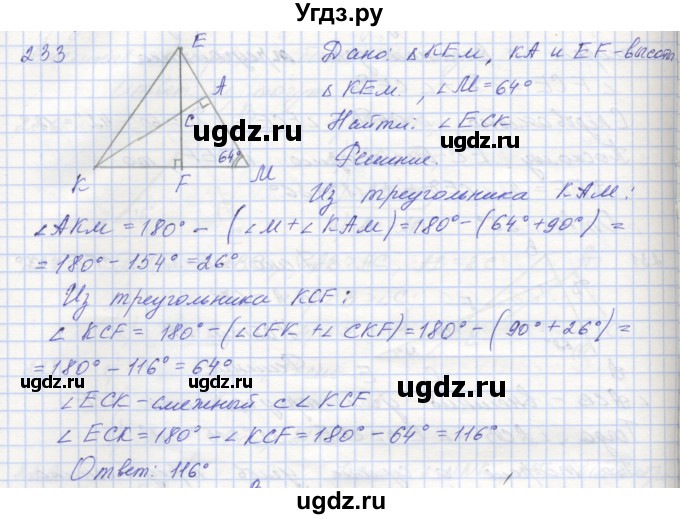 Угдз.ру
233
E
A
C
64°
K
F
M
Дано: △ KEM, KA и EF - высоты
△ KEM, ∠M = 64°
Найти: ∠ECK
Решение.
Из треугольника KAM:
∠AKM = 180° - (∠M + ∠KAM) = 180° - (64° + 90°) =
= 180° - 154° = 26°
Из треугольника KCF:
∠ KCF = 180° - (∠CFK + ∠CKF) = 180° - (90° + 26°) =
= 180° - 116° = 64°
∠ECK - смежный с ∠KCF
∠ECK = 180° - ∠KCF = 180° - 64° = 116°
Ответ: 116°
ugdz.ru
ugdz.ru
ugdz.ru
ugdz.ru
ugdz.ru
ugdz.ru
ugdz.ru